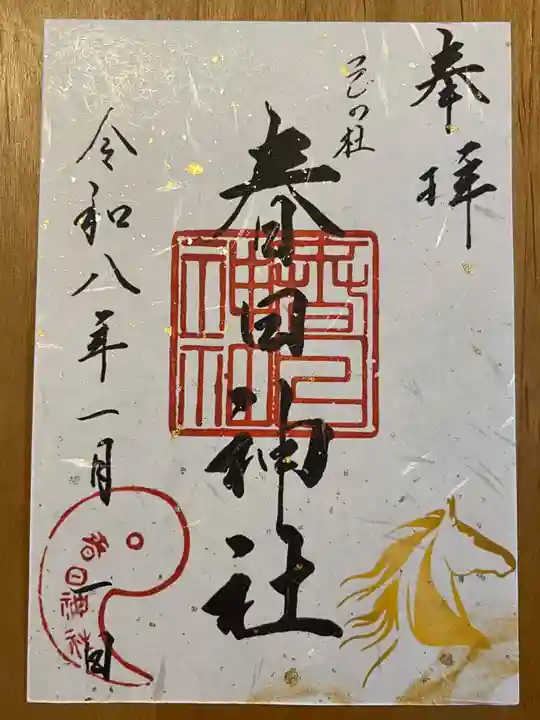 奉拝
春日神社
令和八年一月一日
春日神社
春日神社